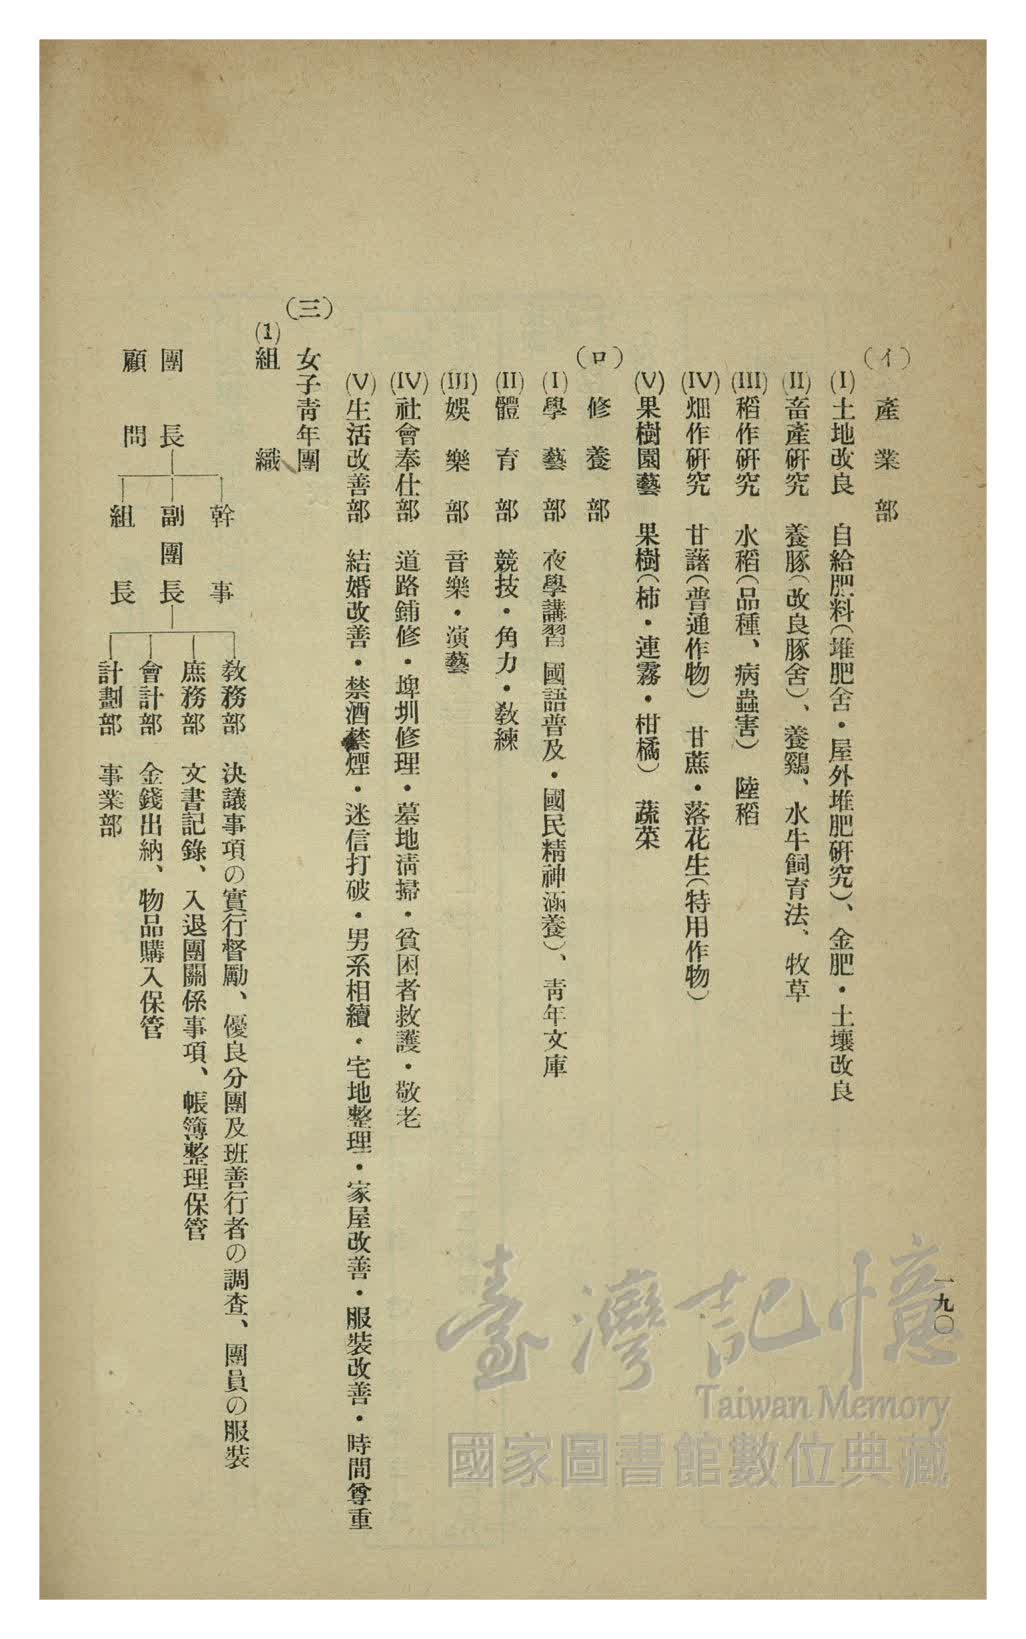 一九〇
(イ) 產業部
(I) 土地改良 自給肥料(堆肥舍・屋外堆肥硏究)、金肥・土壤改良
(II) 畜產硏究 養豚(改良豚舍)、養鷄、水牛飼育法、牧草
(III) 稻作硏究 水稻(品種、病蟲害) 陸稻
(IV) 畑作硏究 甘藷(普通作物) 甘蔗・落花生(特用作物)
(V) 果樹園藝 果樹(柿・連霧・柑橘) 蔬菜
(ロ) 修養部
(I) 學藝部 夜學講習 國語普及・國民精神涵養)、靑年文庫
(II) 體育部 競技・角力・敎練
(III) 娛樂部 音樂・演藝
(IV) 社會奉仕部 道路鋪修・埤圳修理・墓地淸掃・貧困者救護・敬老
(V) 生活改善部 結婚改善・禁酒禁煙・迷信打破・男系相續・宅地整理・家屋改善・服裝改善・時間尊重
(三) 女子靑年團
(1) 組織
團長
顧問
幹事
副團長
組長
敎務部 決議事項の實行督勵、優良分團及班善行者の調査、團員の服裝
庶務部 文書記錄、入退團關係事項、帳簿整理保管
會計部 金錢出納、物品購入保管
計劃部 事業部
臺灣記憶
Taiwan Memory
國家圖書館數位典藏